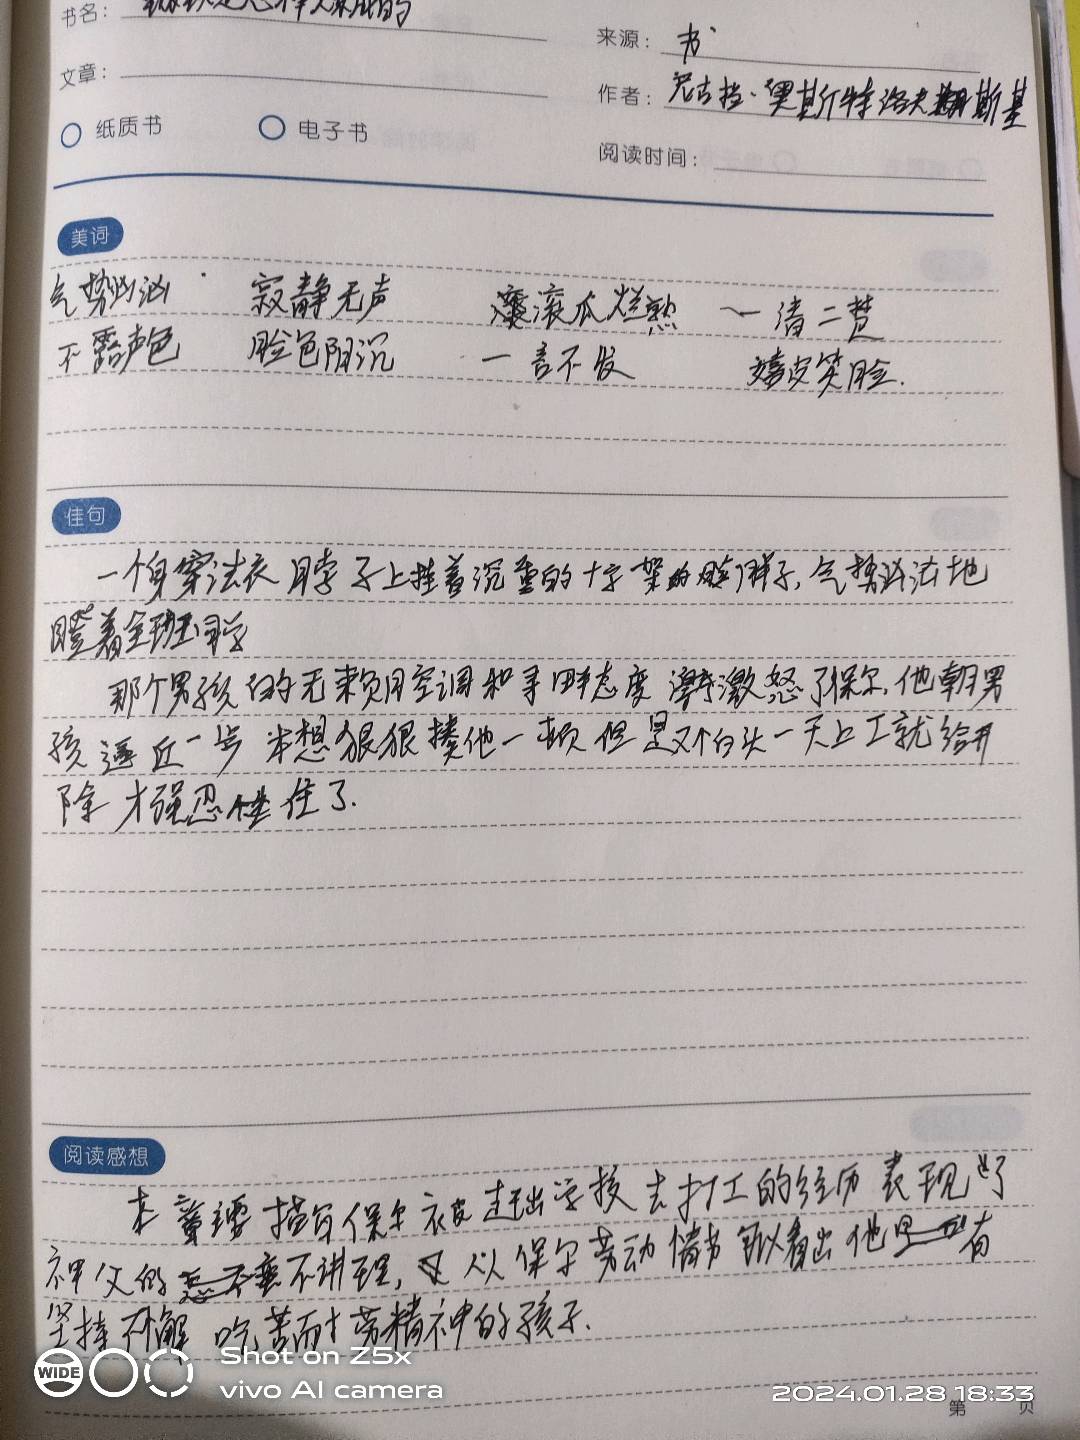 书名： 钢铁是怎样炼成的
来源： 书
文章：
作者： 尼古拉·奥斯特洛夫斯基
纸质书 电子书
阅读时间：
美词
气势汹汹 寂静无声 滚瓜烂熟 一清二楚
不露声色 脸色阴沉 一言不发 嬉皮笑脸.
佳句
一个身穿法衣脖子上挂着沉重的十字架的胖子,气势汹汹地
瞪着全班同学
那个男孩的无赖用空调和寻衅态度激怒了保尔,他朝男
孩逼近一步 本想狠狠揍他一顿 但是又怕头一天上工就给开
除 才强忍住了.
阅读感想
本章 描写保尔被赶出学校去打工的经历 表现了
神父的蛮不讲理, 从保尔劳动情节可以看出他 有
坚持不懈 吃苦耐劳精神的孩子.
WIDE
Shot on Z5x
vivo AI camera
2024.01.28 18:33
第 页